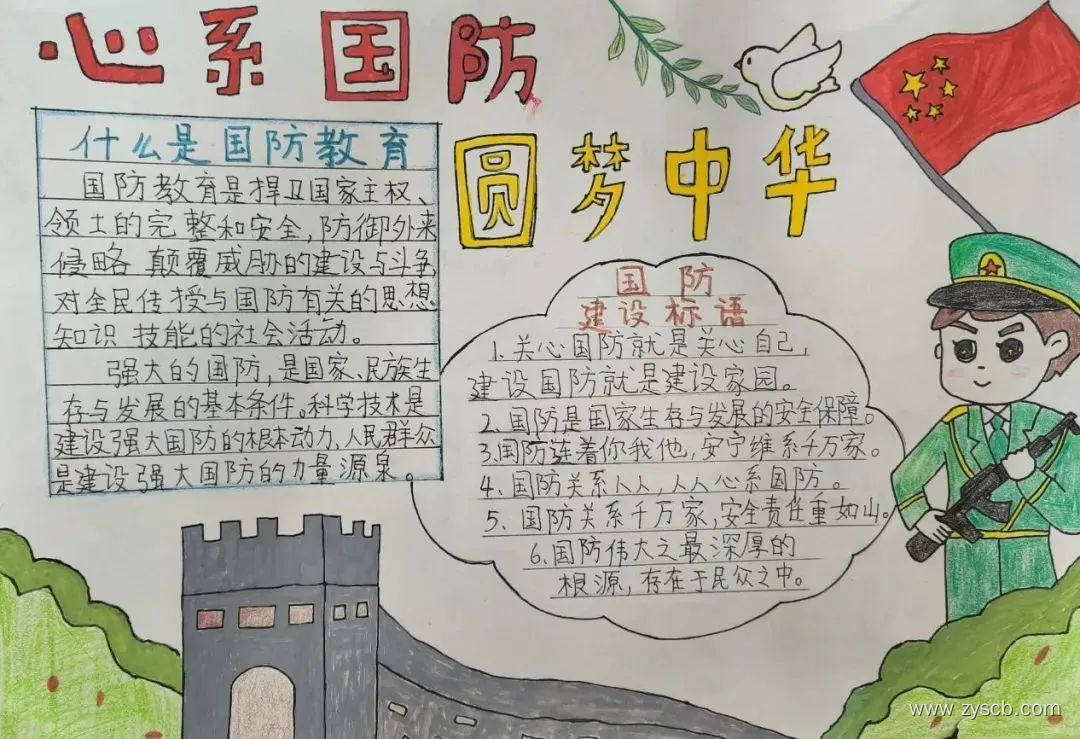 心系国防
圆梦中华
什么是国防教育
国防教育是捍卫国家主权、
领土的完整和安全,防御外来
侵略 颠覆威胁的建设与斗争,
对全民传授与国防有关的思想
知识 技能的社会活动。
强大的国防,是国家、民族生
存与发展的基本条件。科学技术是
建设强大国防的根本动力,人民群众
是建设强大国防的力量源泉。
国防
建设标语
1.关心国防就是关心自己,
建设国防就是建设家园。
2.国防是国家生存与发展的安全保障。
3.国防连着你我他,安宁维系千万家。
4.国防关系人人,人人心系国防。
5、国防关系千万家,安全责任重如山。
6.国防伟大之最深厚的
根源,存在于民众之中。
www.zyscb.com